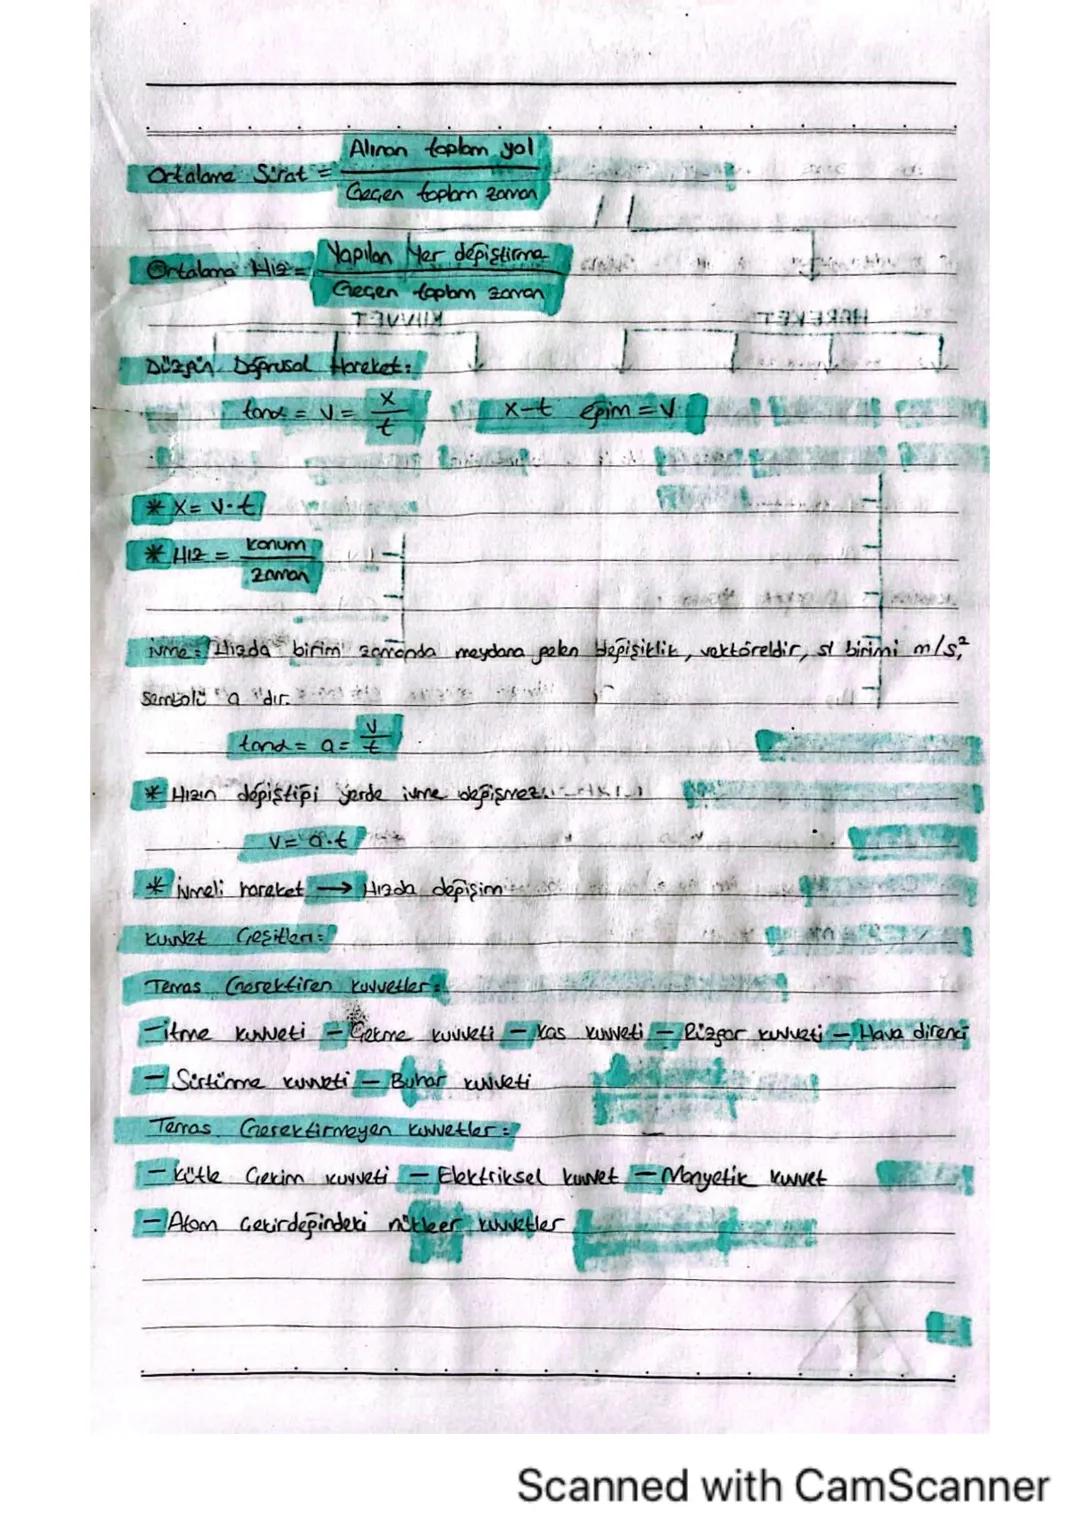 Ortalama Sürat = Alınan toplam yol / Geçen toplam zaman
Ortalama Hız = Yapılan Yer değiştirme / Geçen toplam zaman
KUVVET HAREKET
Düzgün Doğrusal Hareket:
tanα = v = x / t x-t eğim = v
* x = v·t
* Hız = konum / zaman
ivme: Hızda birim zamanda meydana gelen değişiklik, vektöreldir, sı birimi m/s²,
sembolü "a" dır.
tanα = a = v / t
* Hızın değiştiği yerde ivme değişmez.
v = a·t
* ivmeli hareket → Hızda değişim
Kuvvet Çeşitleri:
Temas Gerektiren kuvvetler:
- itme kuvveti - Çekme kuvveti - Kas kuvveti - Rüzgar kuvveti - Hava direnci
- Sürtünme kuvveti - Buhar kuvveti
Temas Gerektirmeyen kuvvetler:
- Kütle Çekim kuvveti - Elektriksel kuvvet - Manyetik kuvvet
- Atom Çekirdeğindeki nükleer kuvvetler
Scanned with CamScanner